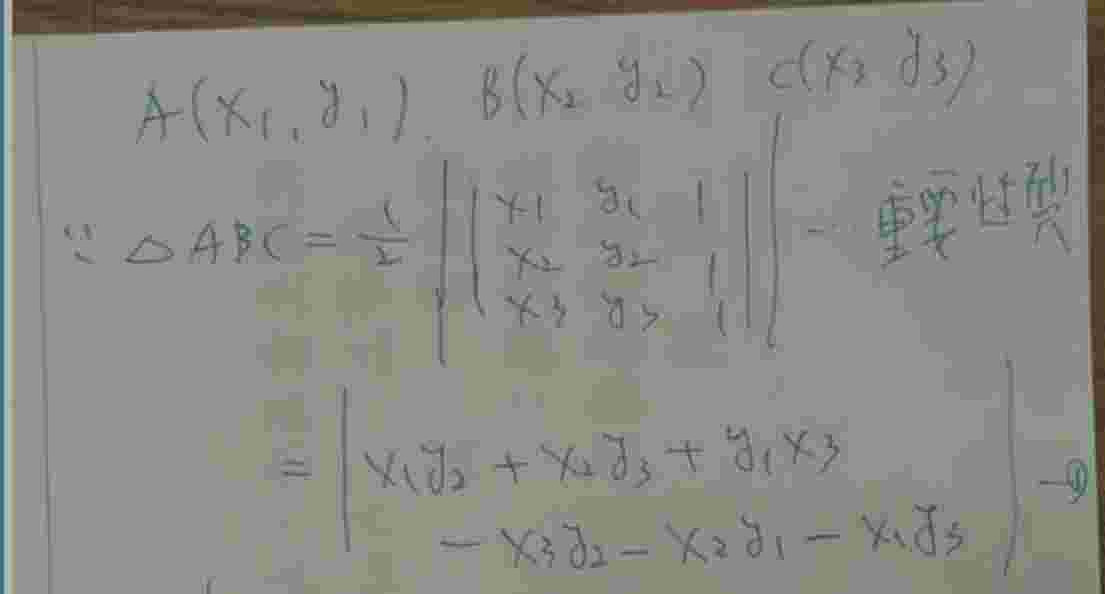 A(x₁, y₁). B(x₂ y₂) C(x₃ y₃)
∵ △ABC = 1/2 | | x₁ y₁ 1 | | … 重要性質
x₂ y₂ 1
x₃ y₃ 1
= | x₁y₂ + x₂y₃ + y₁x₃
- x₃y₂ - x₂y₁ - x₁y₃ | —①